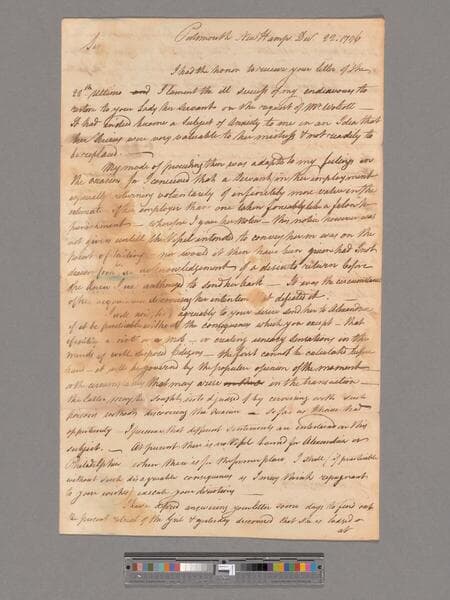 Portsmouth New Hamps Decr. 22. 1796
Sir
I had the honor to receive your letter of the
28th ultimo and I lament the ill success of my endeavours to
restore to your Lady her servant on the request of Mr Wolcott
It had indeed become a subject of Anxiety to me on an Idea that
her services were very valuable to her mistress & not readily to
be replaced. —
My mode of proceeding then was adapted to my feelings on
the occasion for I conceived that a Servant, in her employment
especially, returning voluntarily of infinitely more value in the
estimate of her employer than one taken forceably like a felon to
punishment — whereupon I gave her Notice — this notice however was
not given untill the Vessel intended to convey her was on the
point of Sailing nor would it then have been given had I not
drawn from her an acknowledgement of a desire to return before
she knew I was authorized to send her back — It was the circumstance
of her acquaintance discovering her intention that defeated it.
I will now, Sir, agreeably to your desire send her to Alexandria
if it be practicable without the consequences which you except — that
of exciting a riot or a mob — or creating uneasy Sensations in the
minds of well disposed Citizens — the first cannot be calculated before
hand — it will be governed by the popular opinion of the moment
or the circumstances that may arise in the transaction —
the latter may be sought into & judged of by conversing with such
persons without discovering the occasion — So far as I have had
opportunity I perceive that different Sentiments are entertained on this
subject. — At present there is no Vessel bound for Alexandria or
Philadelphia when there is for the former place I shall, if practicable
without such disagreeable consequences as I may think repugnant
to your wishes, execute your directions —
I have defered answering your letter some days to find out
the present retreat of the Girl & yesterday discovered that she is lodged
at